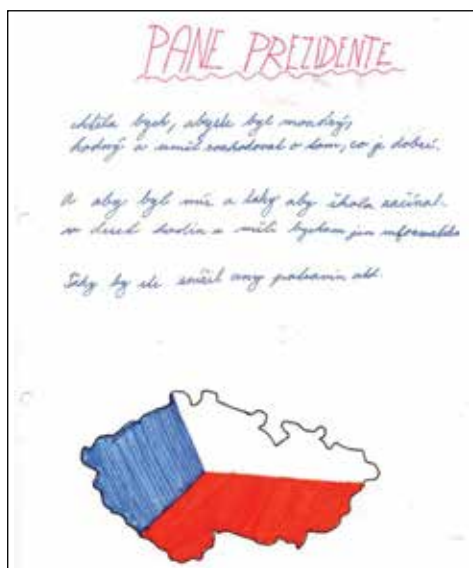 PANE PREZIDENTE
chtěla bych, abyste byl moudrý,
hodný a uměl rozhodovat o tom, co je dobré.
A aby byl mír a taky aby škola začínal
v deset hodin a měli bychom jen informatiku
Taky by ste snížil ceny potravin atd.